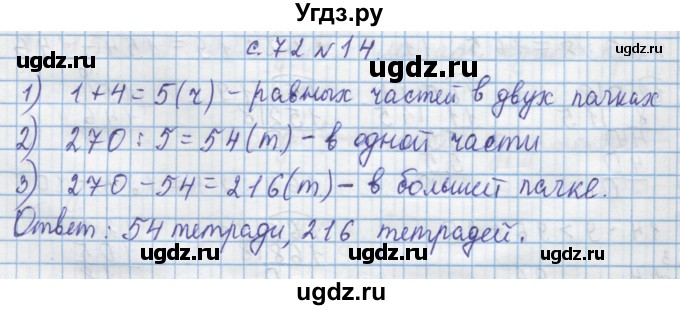 Угдз.ру
с. 72 N 14
1) 1 + 4 = 5 (ч) - равных частей в двух пачках
2) 270 : 5 = 54 (т) - в одной части
3) 270 - 54 = 216 (т) - в большей пачке.
Ответ: 54 тетради, 216 тетрадей.
ugdz.ru ugdz.ru
ugdz.ru ugdz.ru
ugdz.ru ugdz.ru
ugdz.ru
ugdz.ru